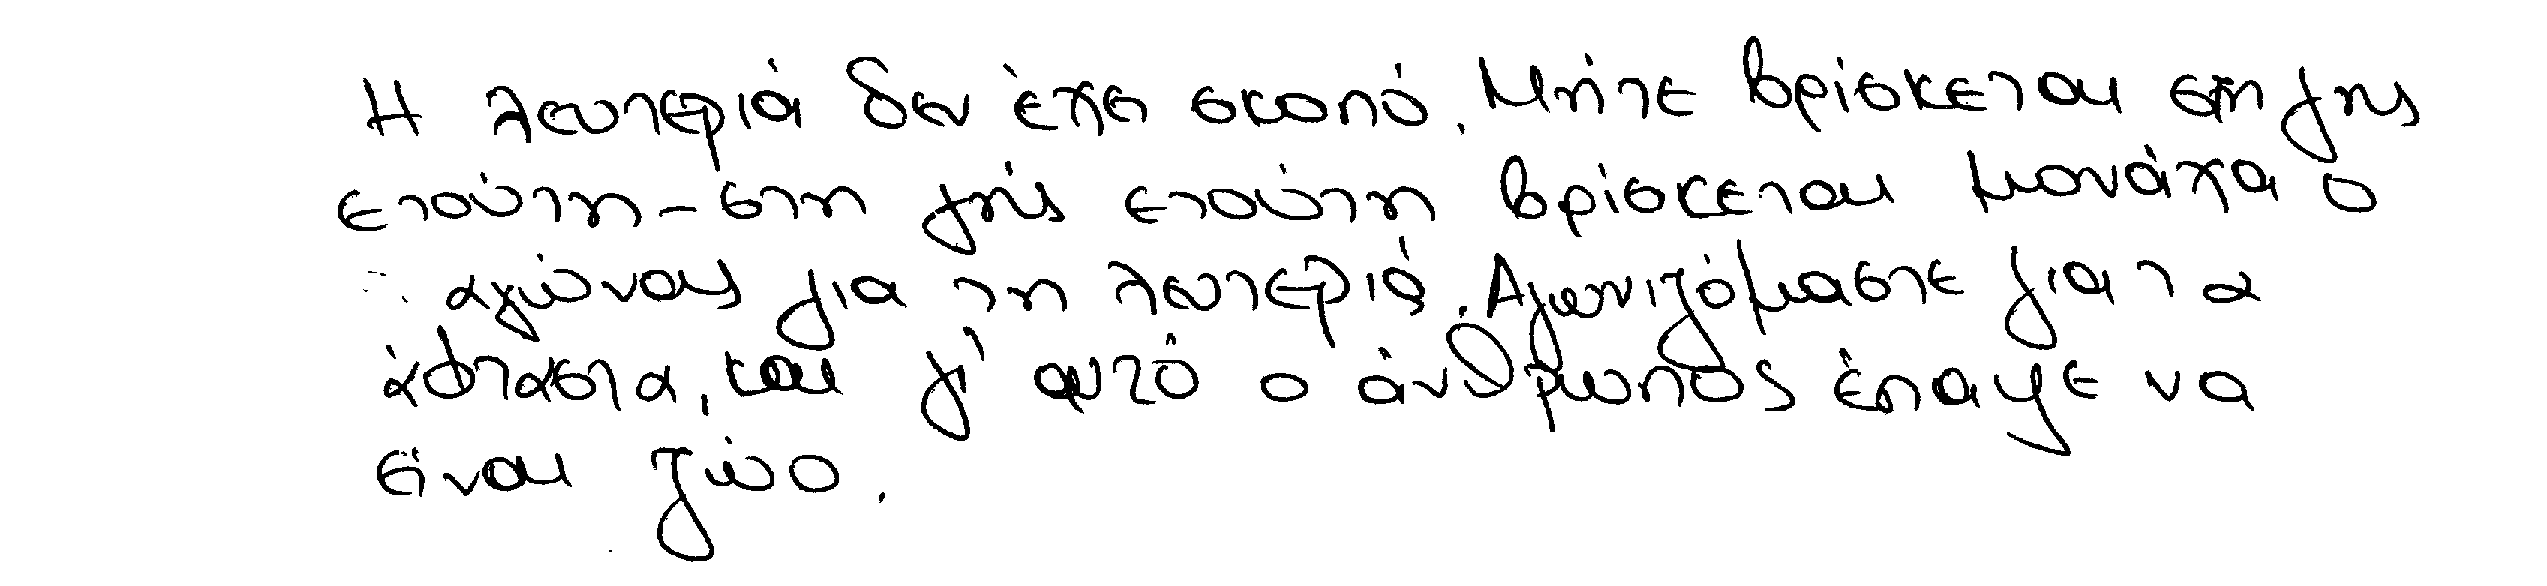 Η λευτεριά δεν έχει σκοπό. Μήτε βρίσκεται στη γης
ετούτη - στη γης ετούτη βρίσκεται μονάχα ο
αγώνας για τη λευτεριά. Αγωνιζόμαστε για τα
άφταστα, και γι' αυτό ο άνθρωπος έπαψε να
είναι ζώο.